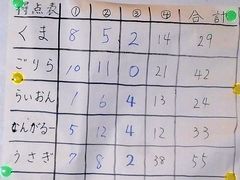 得点表 ① ② ③ ④ 合計
くま 8 5 2 14 29
ごりら 10 11 0 21 42
らいおん 1 6 4 13 24
かんがるー 5 12 4 12 33
うさぎ 7 8 2 38 55